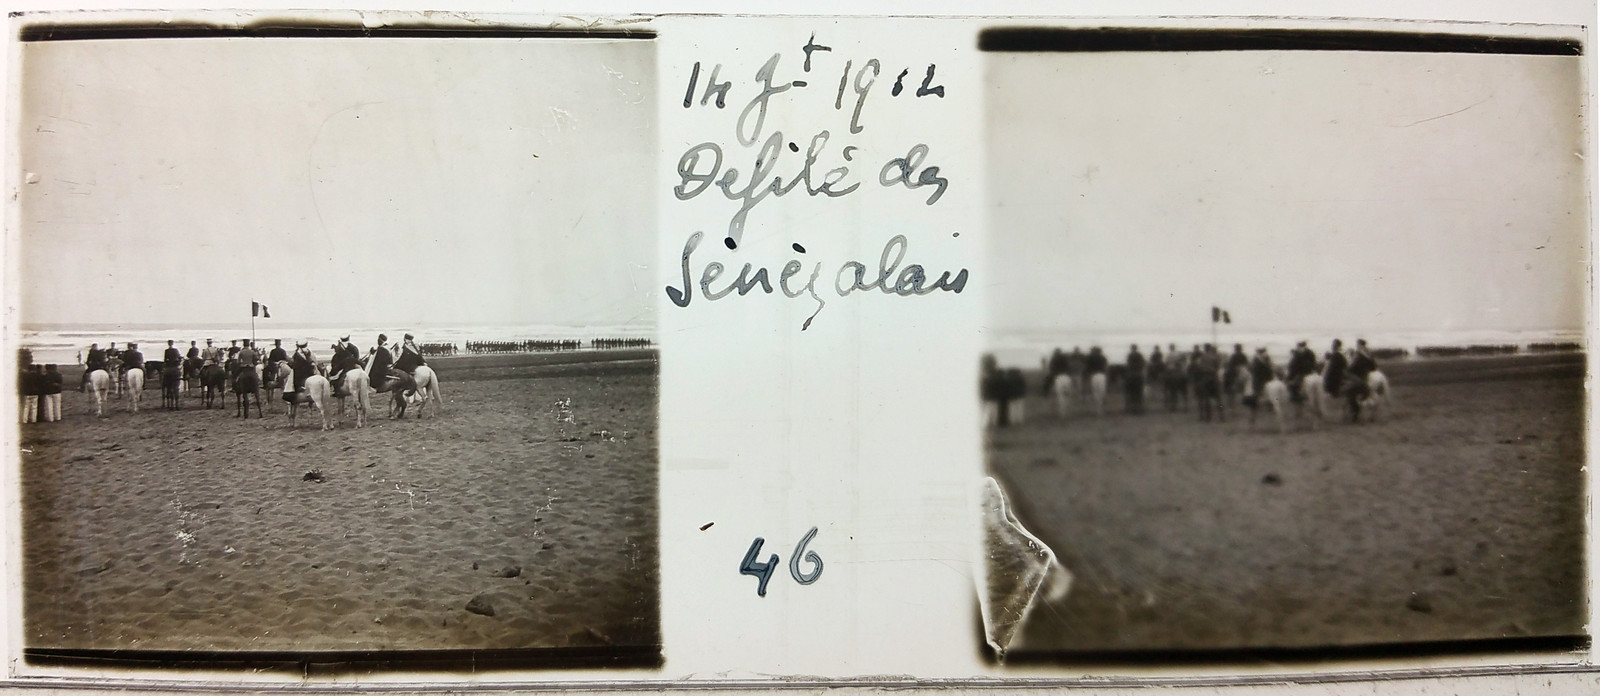 14 Jt 1912
Défilé des
Sénégalais
46